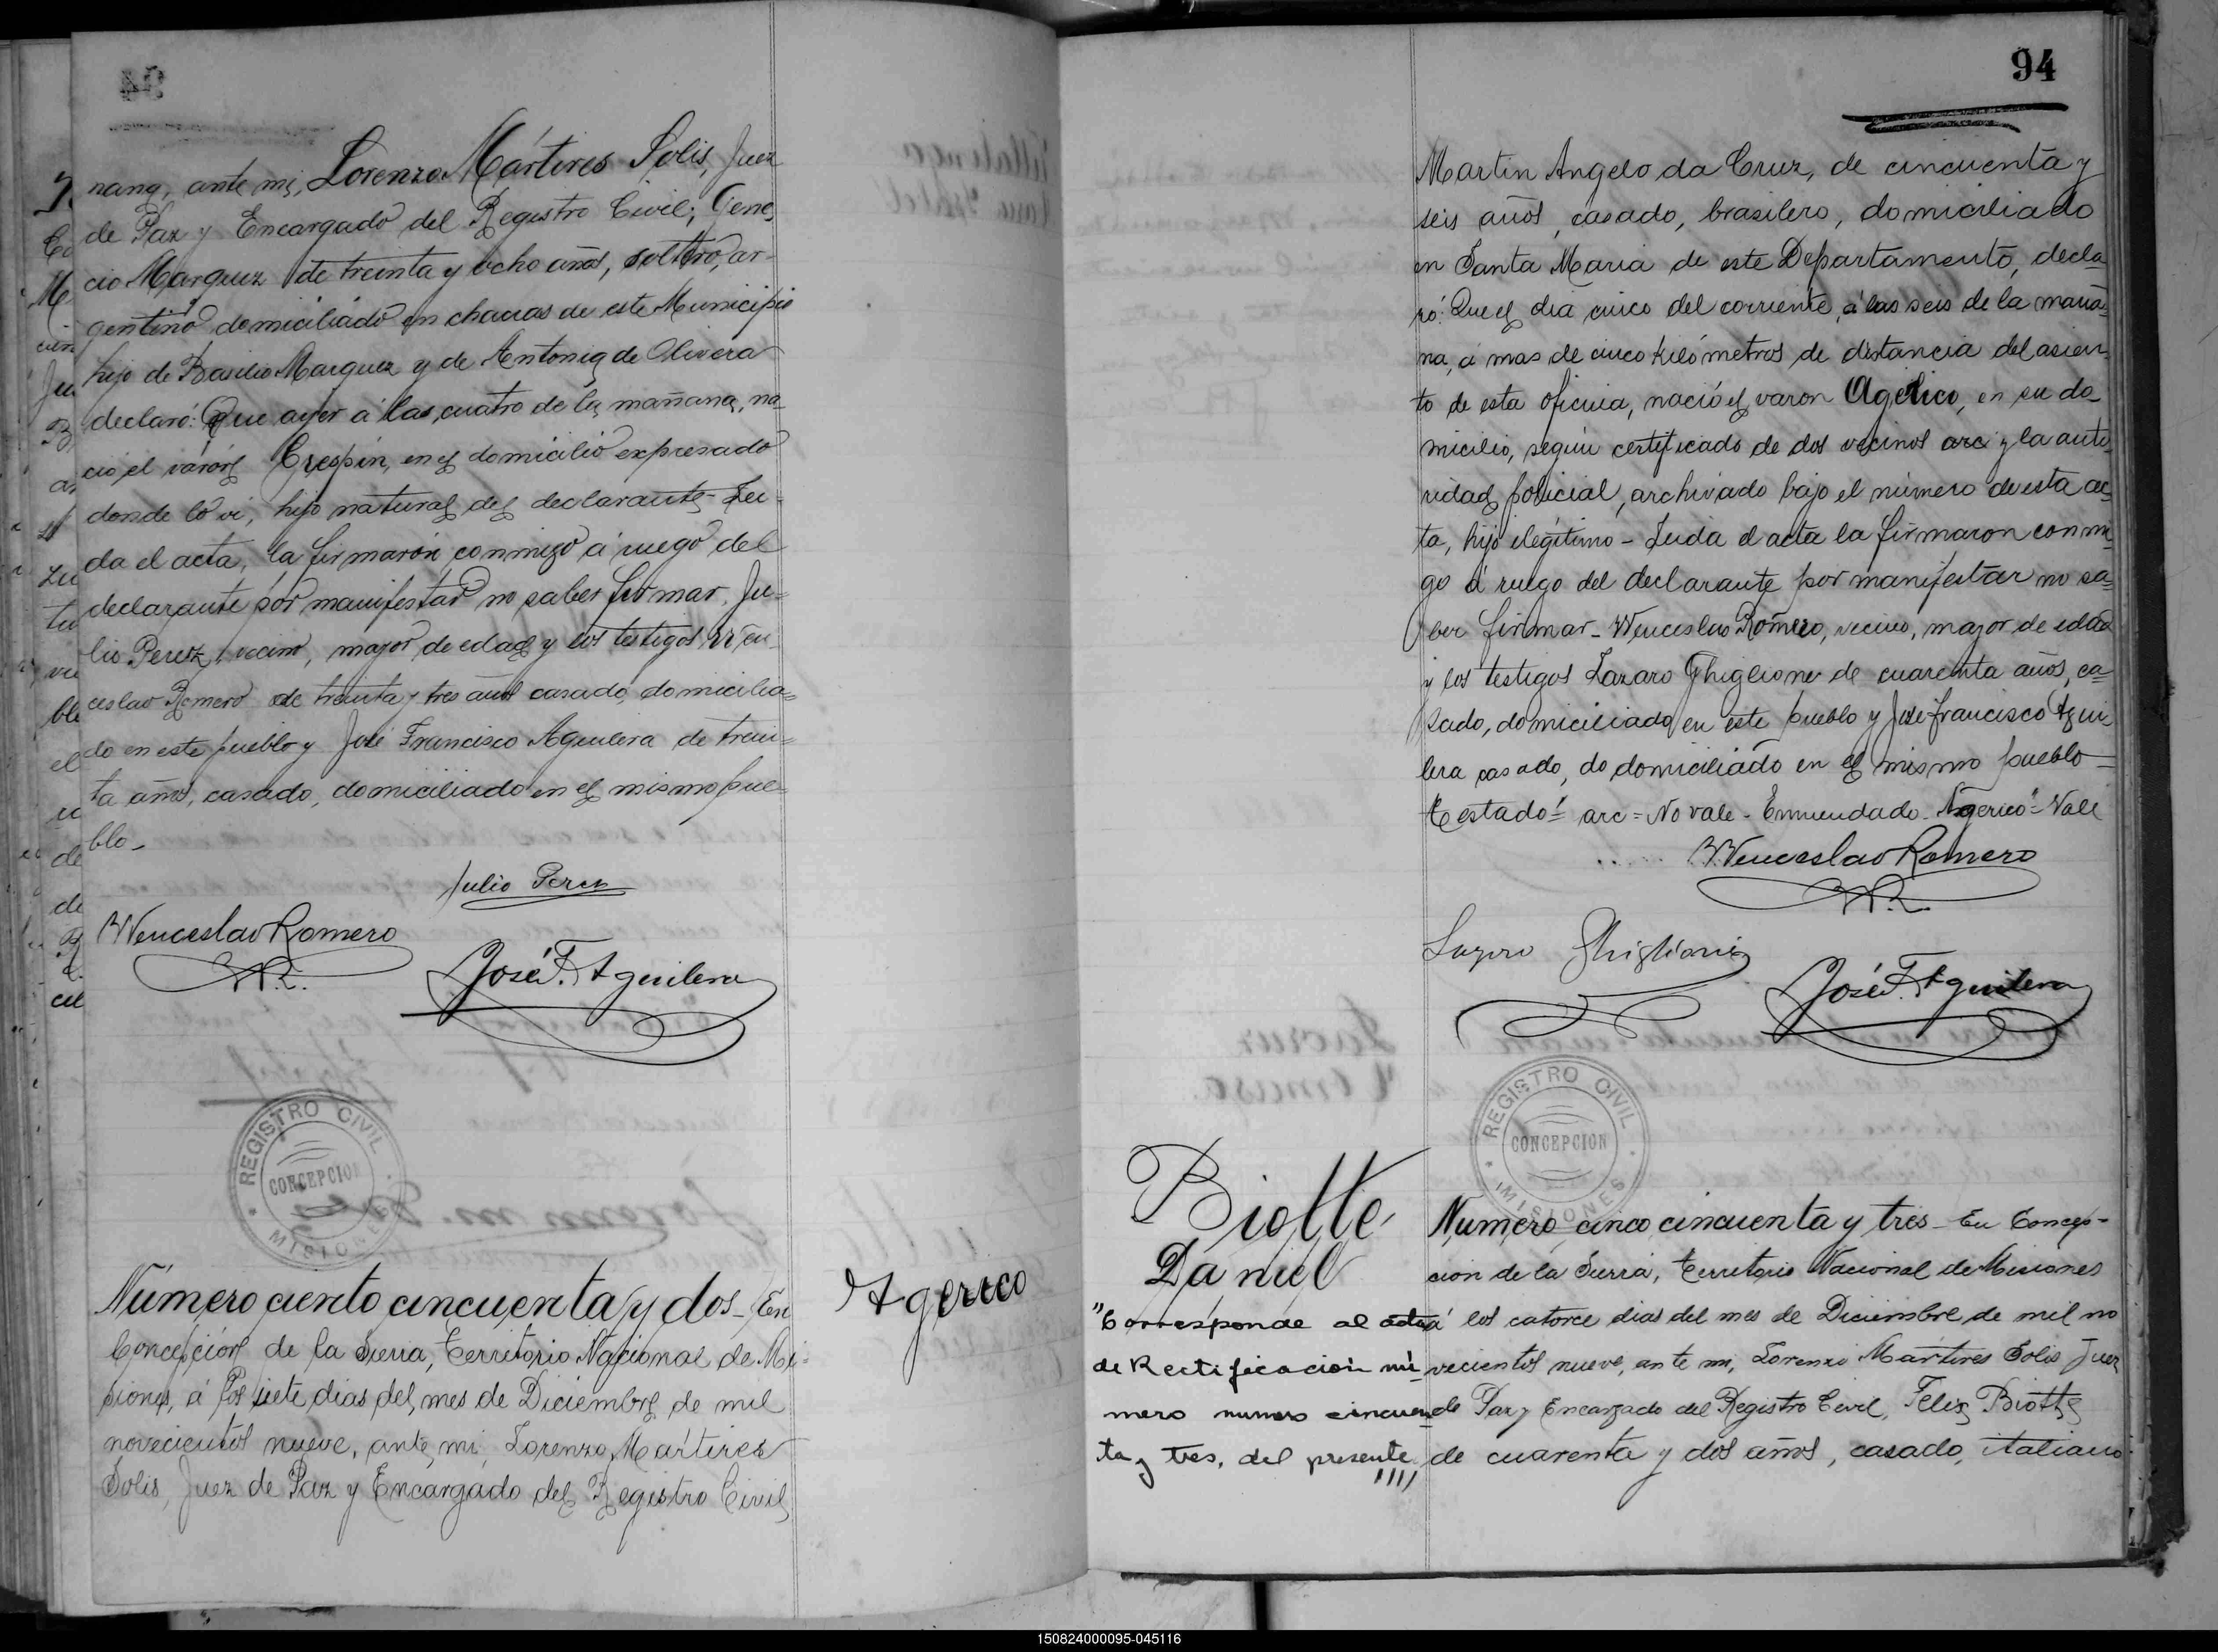 nana, ante mi, Lorenzo Mártires Solis, Juez
de Paz y Encargado del Registro Civil; Gene
cio Marquez de treinta y ocho años, soltero, ar-
gentino domiciliado en chacras de este Municipio
hijo de Basilio Marquez y de Antonia de Olivera
declaró: Que ayer á las cuatro de la mañana, na-
ció el varón Crespin, en el domicilio expresado
donde lo vi, hijo natural del declarante - Lei-
da el acta, la firmaron conmigo á ruego del
declarante por manifestar no saber firmar, Ju-
lio Perez, vecino, mayor de edad y los testigos Wen-
ceslao Romero de treinta y tres años casado, domicilia=
do en este pueblo y José Francisco Aguilera de trein=
ta años, casado, domiciliado en el mismo pue=
blo -
Julio Perez
Wenceslao Romero
W.R.
José F. Aguilera
REGISTRO CIVIL
CONCEPCION
MISIONES
Número ciento cincuenta y dos - En
Concepción de la Sierra, Territorio Nacional de Mi-
siones, á los siete dias del mes de Diciembre de mil
novecientos nueve, ante mi, Lorenzo Mártires
Solis, Juez de Paz y Encargado del Registro Civil
Agerico
94
Martin Angelo da Cruz, de cincuenta y
seis años, casado, brasilero, domiciliado
en Santa Maria de este Departamento, decla
ró: Que el dia cinco del corriente, á las seis de la maña=
na, á mas de cinco kilómetros de distancia del asien
to de esta oficina, nació el varon Agerico, en su do
micilio, según certificado de dos vecinos arc y la auto
ridad policial, archivado bajo el número de esta ac
ta, hijo ilegítimo - Leida el acta la firmaron conmi
go á ruego del declarante por manifestar no sa
ber firmar - Wenceslao Romero, vecino, mayor de edad
y los testigos Lazaro Ghiglione de cuarenta años, ca
sado, domiciliado en este pueblo y José Francisco Agui
lera casado, do domiciliado en el mismo pueblo -
Testado: arc = No vale - Enmendado - Agerico - Vale
Wenceslao Romero
W.R.
Lazaro Ghiglione
José F. Aguilera
REGISTRO CIVIL
CONCEPCION
MISIONES
Biotte
Daniel
"Corresponde al acta
de Rectificación nú
mero numero cincuen
ta y tres, del presente
Numero cinco cincuenta y tres - En Concep-
cion de la Sierra, Territorio Nacional de Misiones
á los catorce dias del mes de Diciembre de mil no
vecientos nueve, ante mi, Lorenzo Mártires Solis Juez
de Paz y Encargado del Registro Civil, Felix Biotte
de cuarenta y dos años, casado, italiano
150824000095-045116